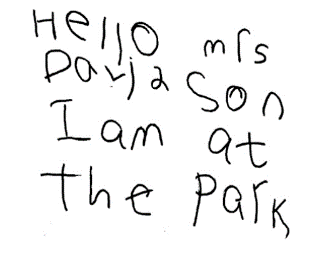 Hello mrs
Davja Son
I am at
the park